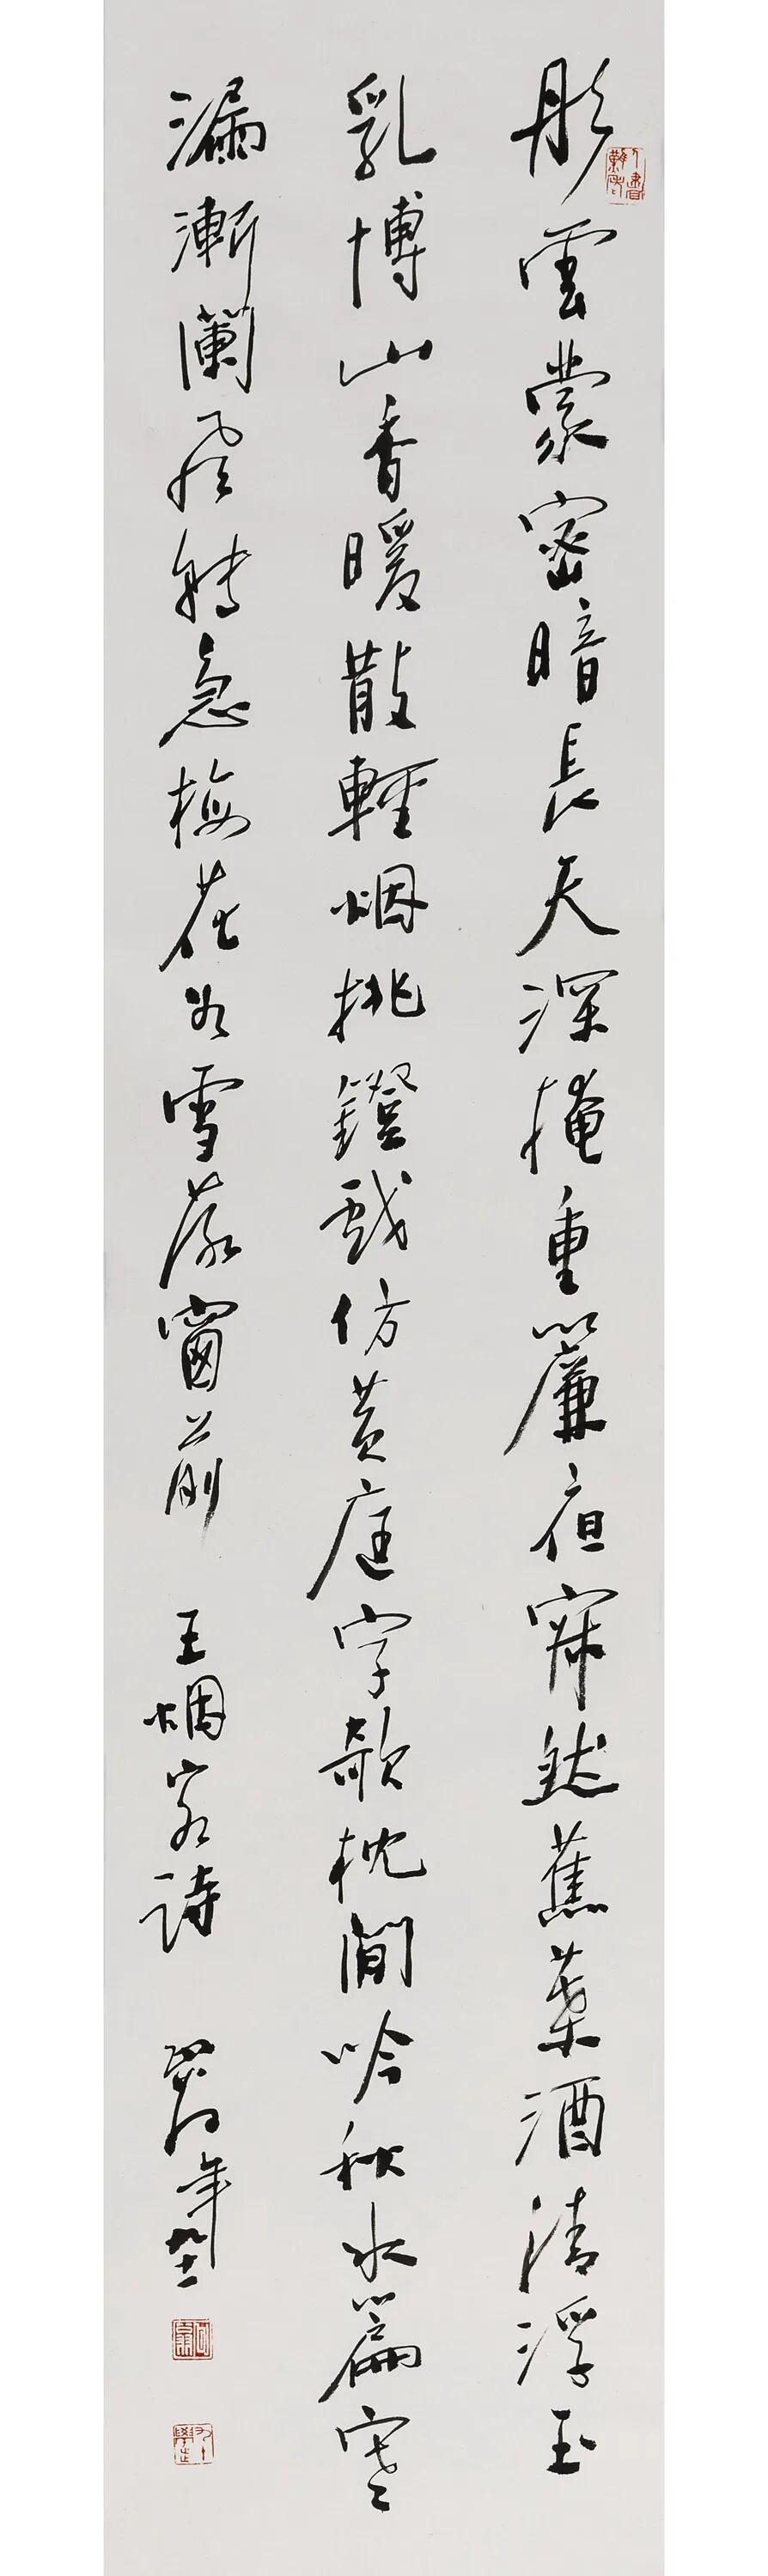 彤雲蒙密暗長天深掩重簾夜寂然蕉葉酒清浮玉
乳博山香暖散輕烟挑鐙戲仿黃庭字欹枕閒吟秋水篇寒
漏漸闌風轉急梅花如雪落窗前
王烟客詩
年